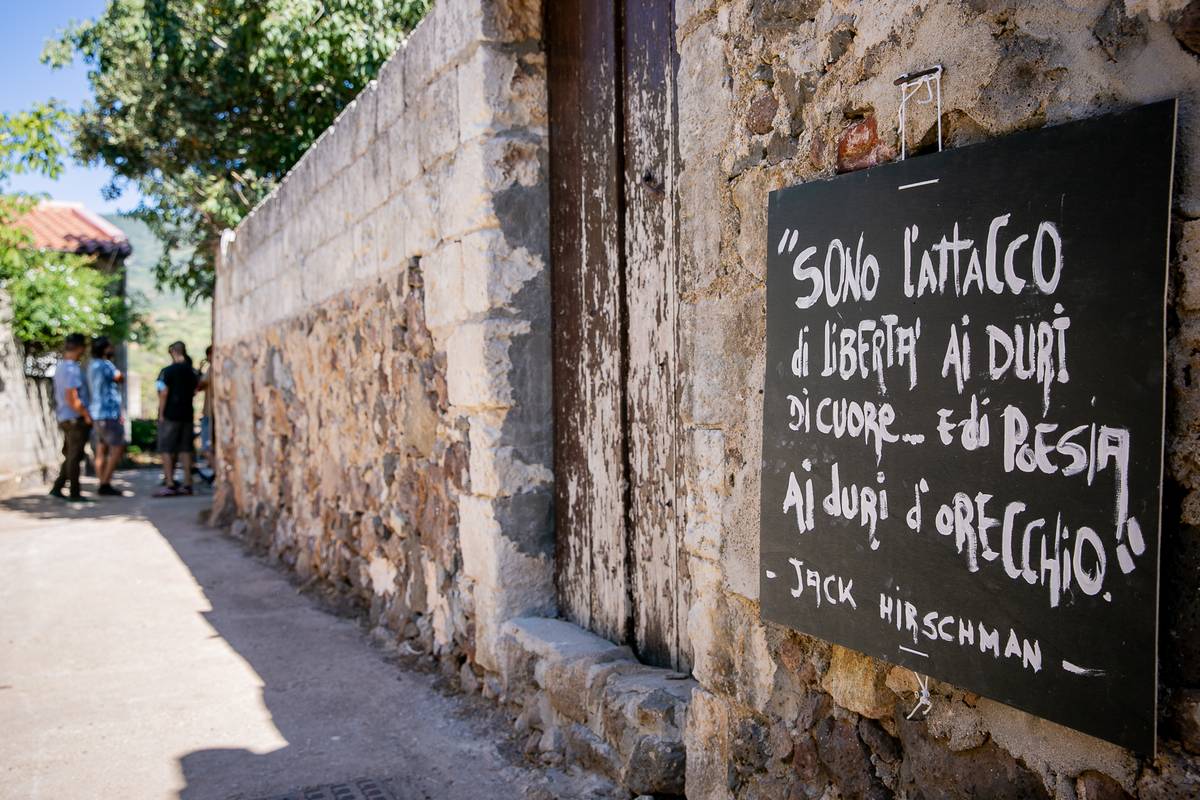 "SONO l'ATTACCO
di liBERTA' Ai DURI
Di CUORE... E di POESIA
Ai duri d'ORECCHiO."
- JACK HiRSCHMAN -